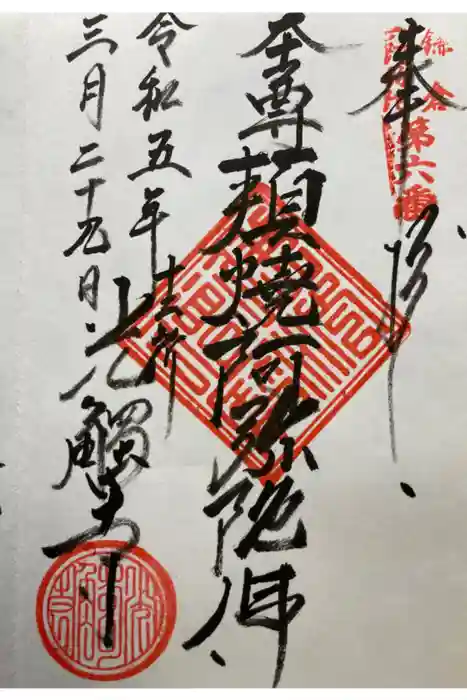 奉拝
鎌倉第六番
本尊頬焼阿弥陀仏
十二所
光觸寺
令和五年
三月二十九日